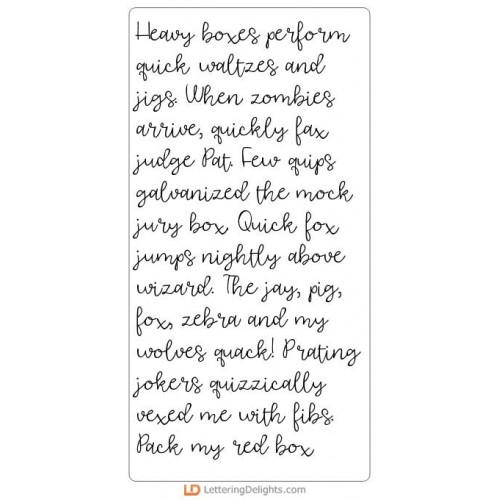 Heavy boxes perform
quick waltzes and
jigs. When zombies
arrive, quickly fax
judge Pat. Few quips
galvanized the mock
jury box. Quick fox
jumps nightly above
wizard. The jay, pig,
fox, zebra and my
wolves quack! Prating
jokers quizzically
vexed me with fibs.
Pack my red box
LD LetteringDelights.com